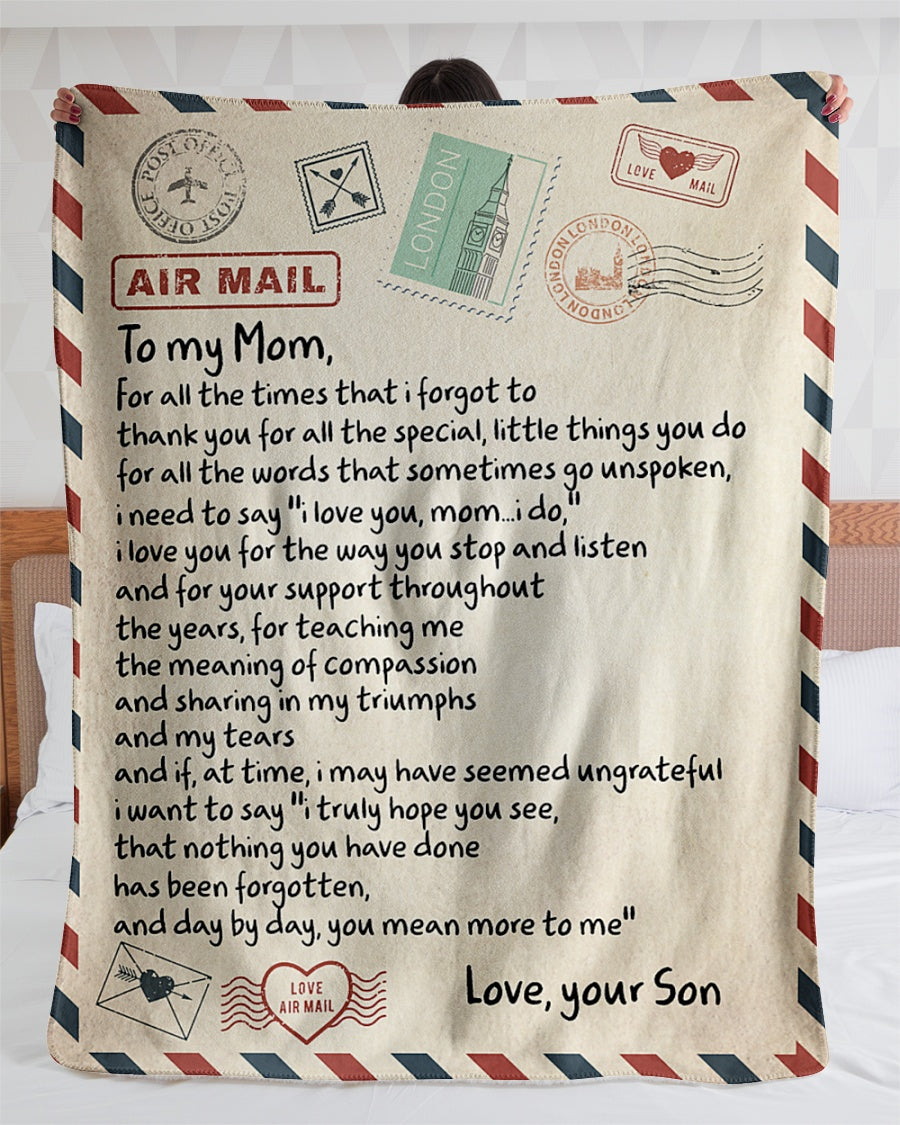 POST OFFICE POST OFFICE
LONDON
LOVE MAIL
LONDON LONDON LONDON LONDON
AIR MAIL
To my Mom,
For all the times that i forgot to
thank you for all the special, little things you do
for all the words that sometimes go unspoken,
i need to say "i love you, mom...i do,"
i love you for the way you stop and listen
and for your support throughout
the years, for teaching me
the meaning of compassion
and sharing in my triumphs
and my tears
and if, at time, i may have seemed ungrateful
i want to say "i truly hope you see,
that nothing you have done
has been forgotten,
and day by day, you mean more to me"
Love, your Son
LOVE
AIR MAIL